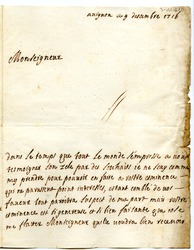 avignon ce 9 decembre 1716
Monseigneur
dans le temps que tout le monde s'empresse a vous
tesmoigner son zele par des souhaits je ne scay comme
my prendre pour pouvoir en faire a vostre eminence
qui ne paroissent point interessés, estant comblé de vos
faveurs tout paroistra suspec de ma part mais vostre
eminence est si genereuse et si bien faisante que j'ose
me flatter Monseigneur quelle voudra bien recevoir